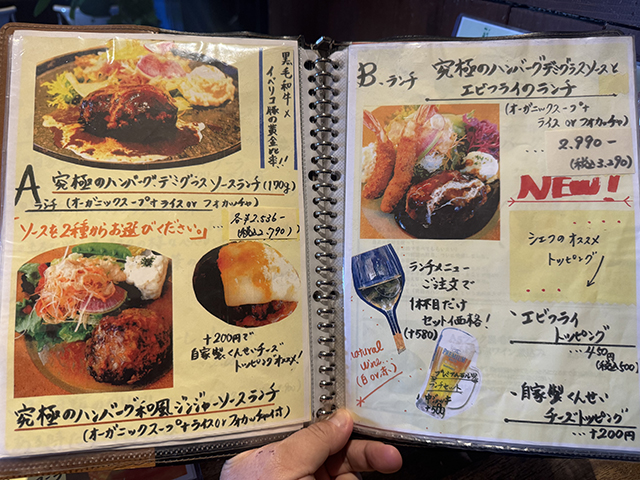 黒毛和牛×
イベリコ豚の黄金比率!!
A 究極のハンバーグデミグラスソースランチ(170g)
ランチ (オーガニックスープ+ライス or フォカッチャ)
「ソースを2種からお選びください。」
… 各¥2.536-
(税込2.790)
+200円で
自家製くんせいチーズ
トッピングオススメ!
究極のハンバーグ和風ジンジャーソースランチ
(オーガニックスープ+ライス or フォカッチャ付)
B.ランチ 究極のハンバーグデミグラスソースと
エビフライのランチ
(オーガニックスープ+
ライス or フォカッチャ)
… 2.990-
(税込3.290)
NEW!
シェフのオススメ
トッピング
ランチメニュー
ご注文で
1杯目だけ
セット価格!
(+580)
natural
wine...
(白 or 赤.)
・エビフライ
トッピング
… 450円
(税込500)
・自家製くんせい
チーズトッピング
… +200円